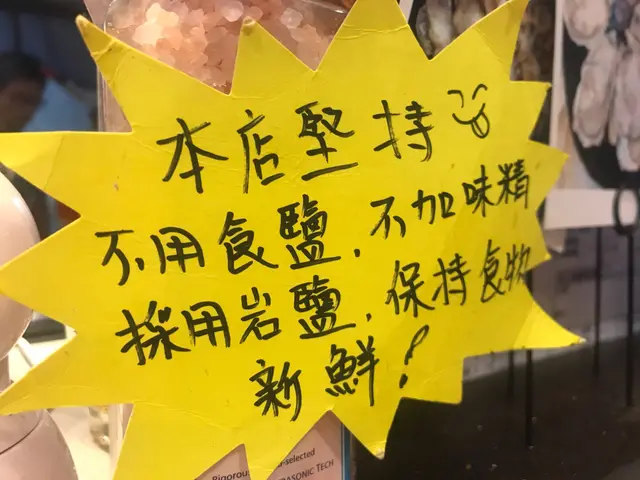 本店堅持
不用食鹽,不加味精
採用岩鹽,保持食物
新鮮!
-selected
RASONIC TECH